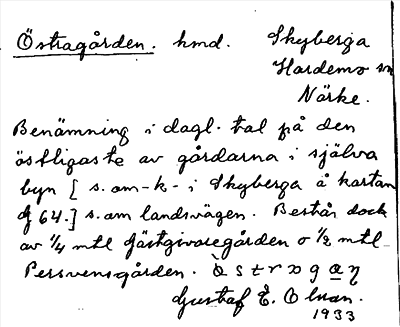 Östragården. hmd. Skyberga
Hardemo sn
Närke.
Benämning i dagl. tal på den
östligaste av gårdarna i själva
byn [ s. om -k- i Skyberga å kartan
64.] s. om landsvägen. Består dock
av 1/4 mtl Gästgivaregården o 1/2 mtl
Persvensgården.
Gustaf E. Olsson.
1933